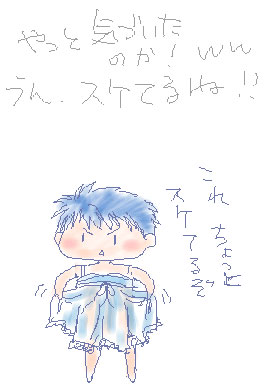 やっと気づいた
のか!ww
うん、スケてるね!!
これ ちょっと
スケてるぞ